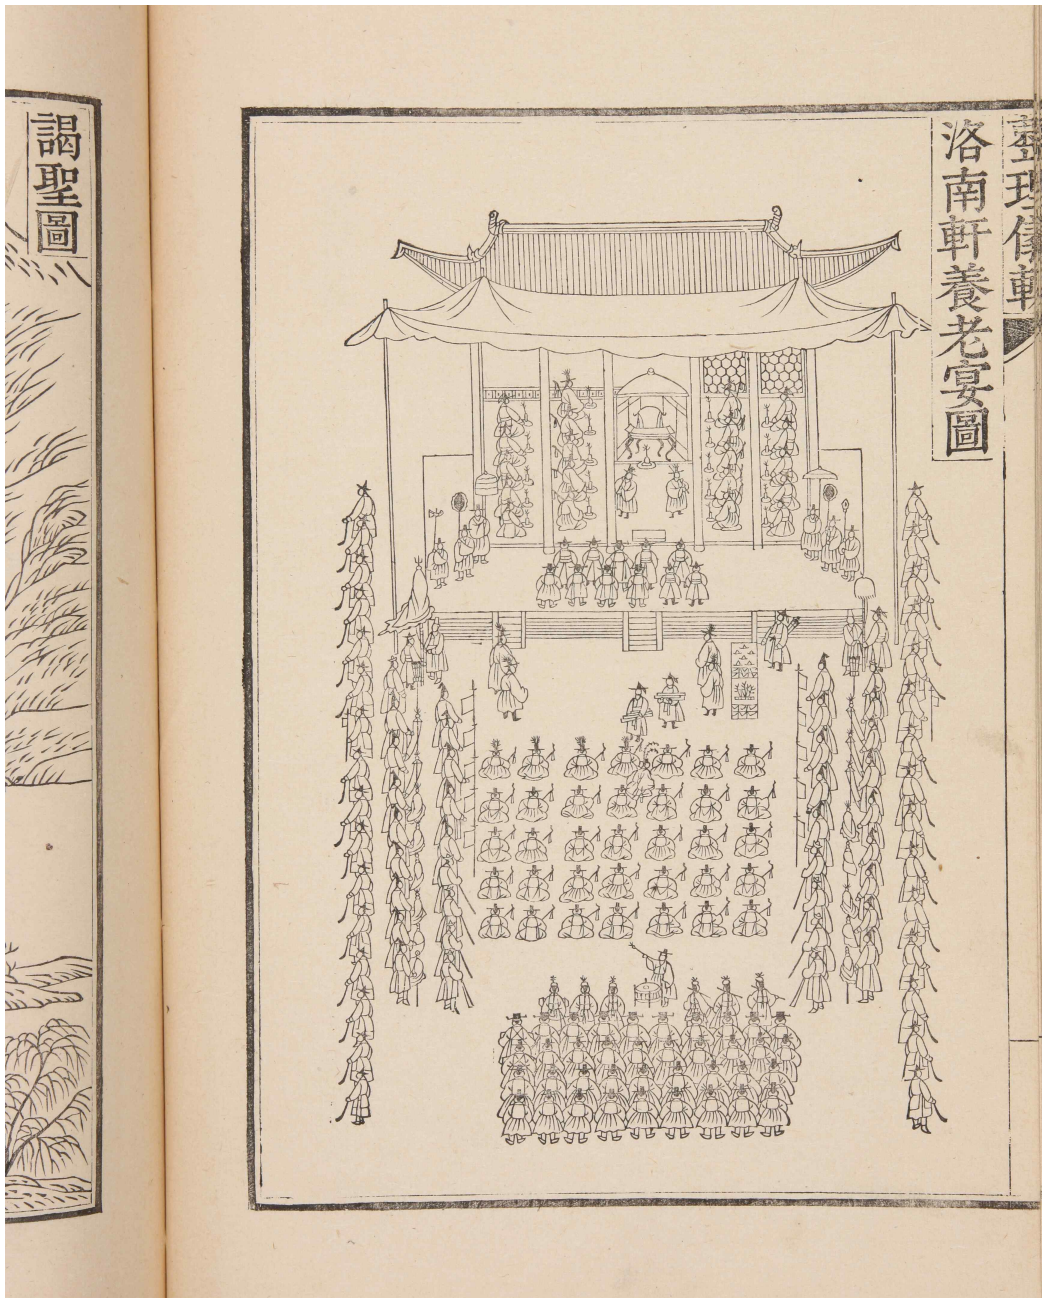 整理儀軌
洛南軒養老宴圖
謁聖圖